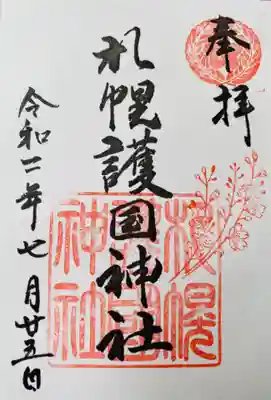 奉拝
札幌護国神社
札幌護國神社
令和二年七月廿五日